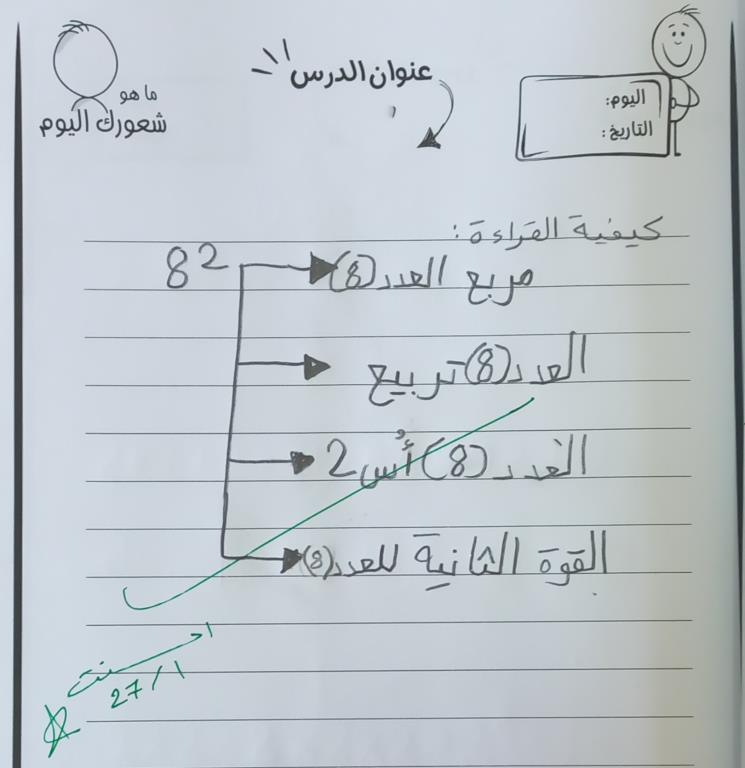 اليوم:
التاريخ:
عنوان الدرس
ما هو
شعورك اليوم
كيفية القراءة:
8²
مربع العدد (8)
العدد (8) تربيع
العدد (8) أُس 2
القوة الثانية للعدد (8)
احسنت
27/1